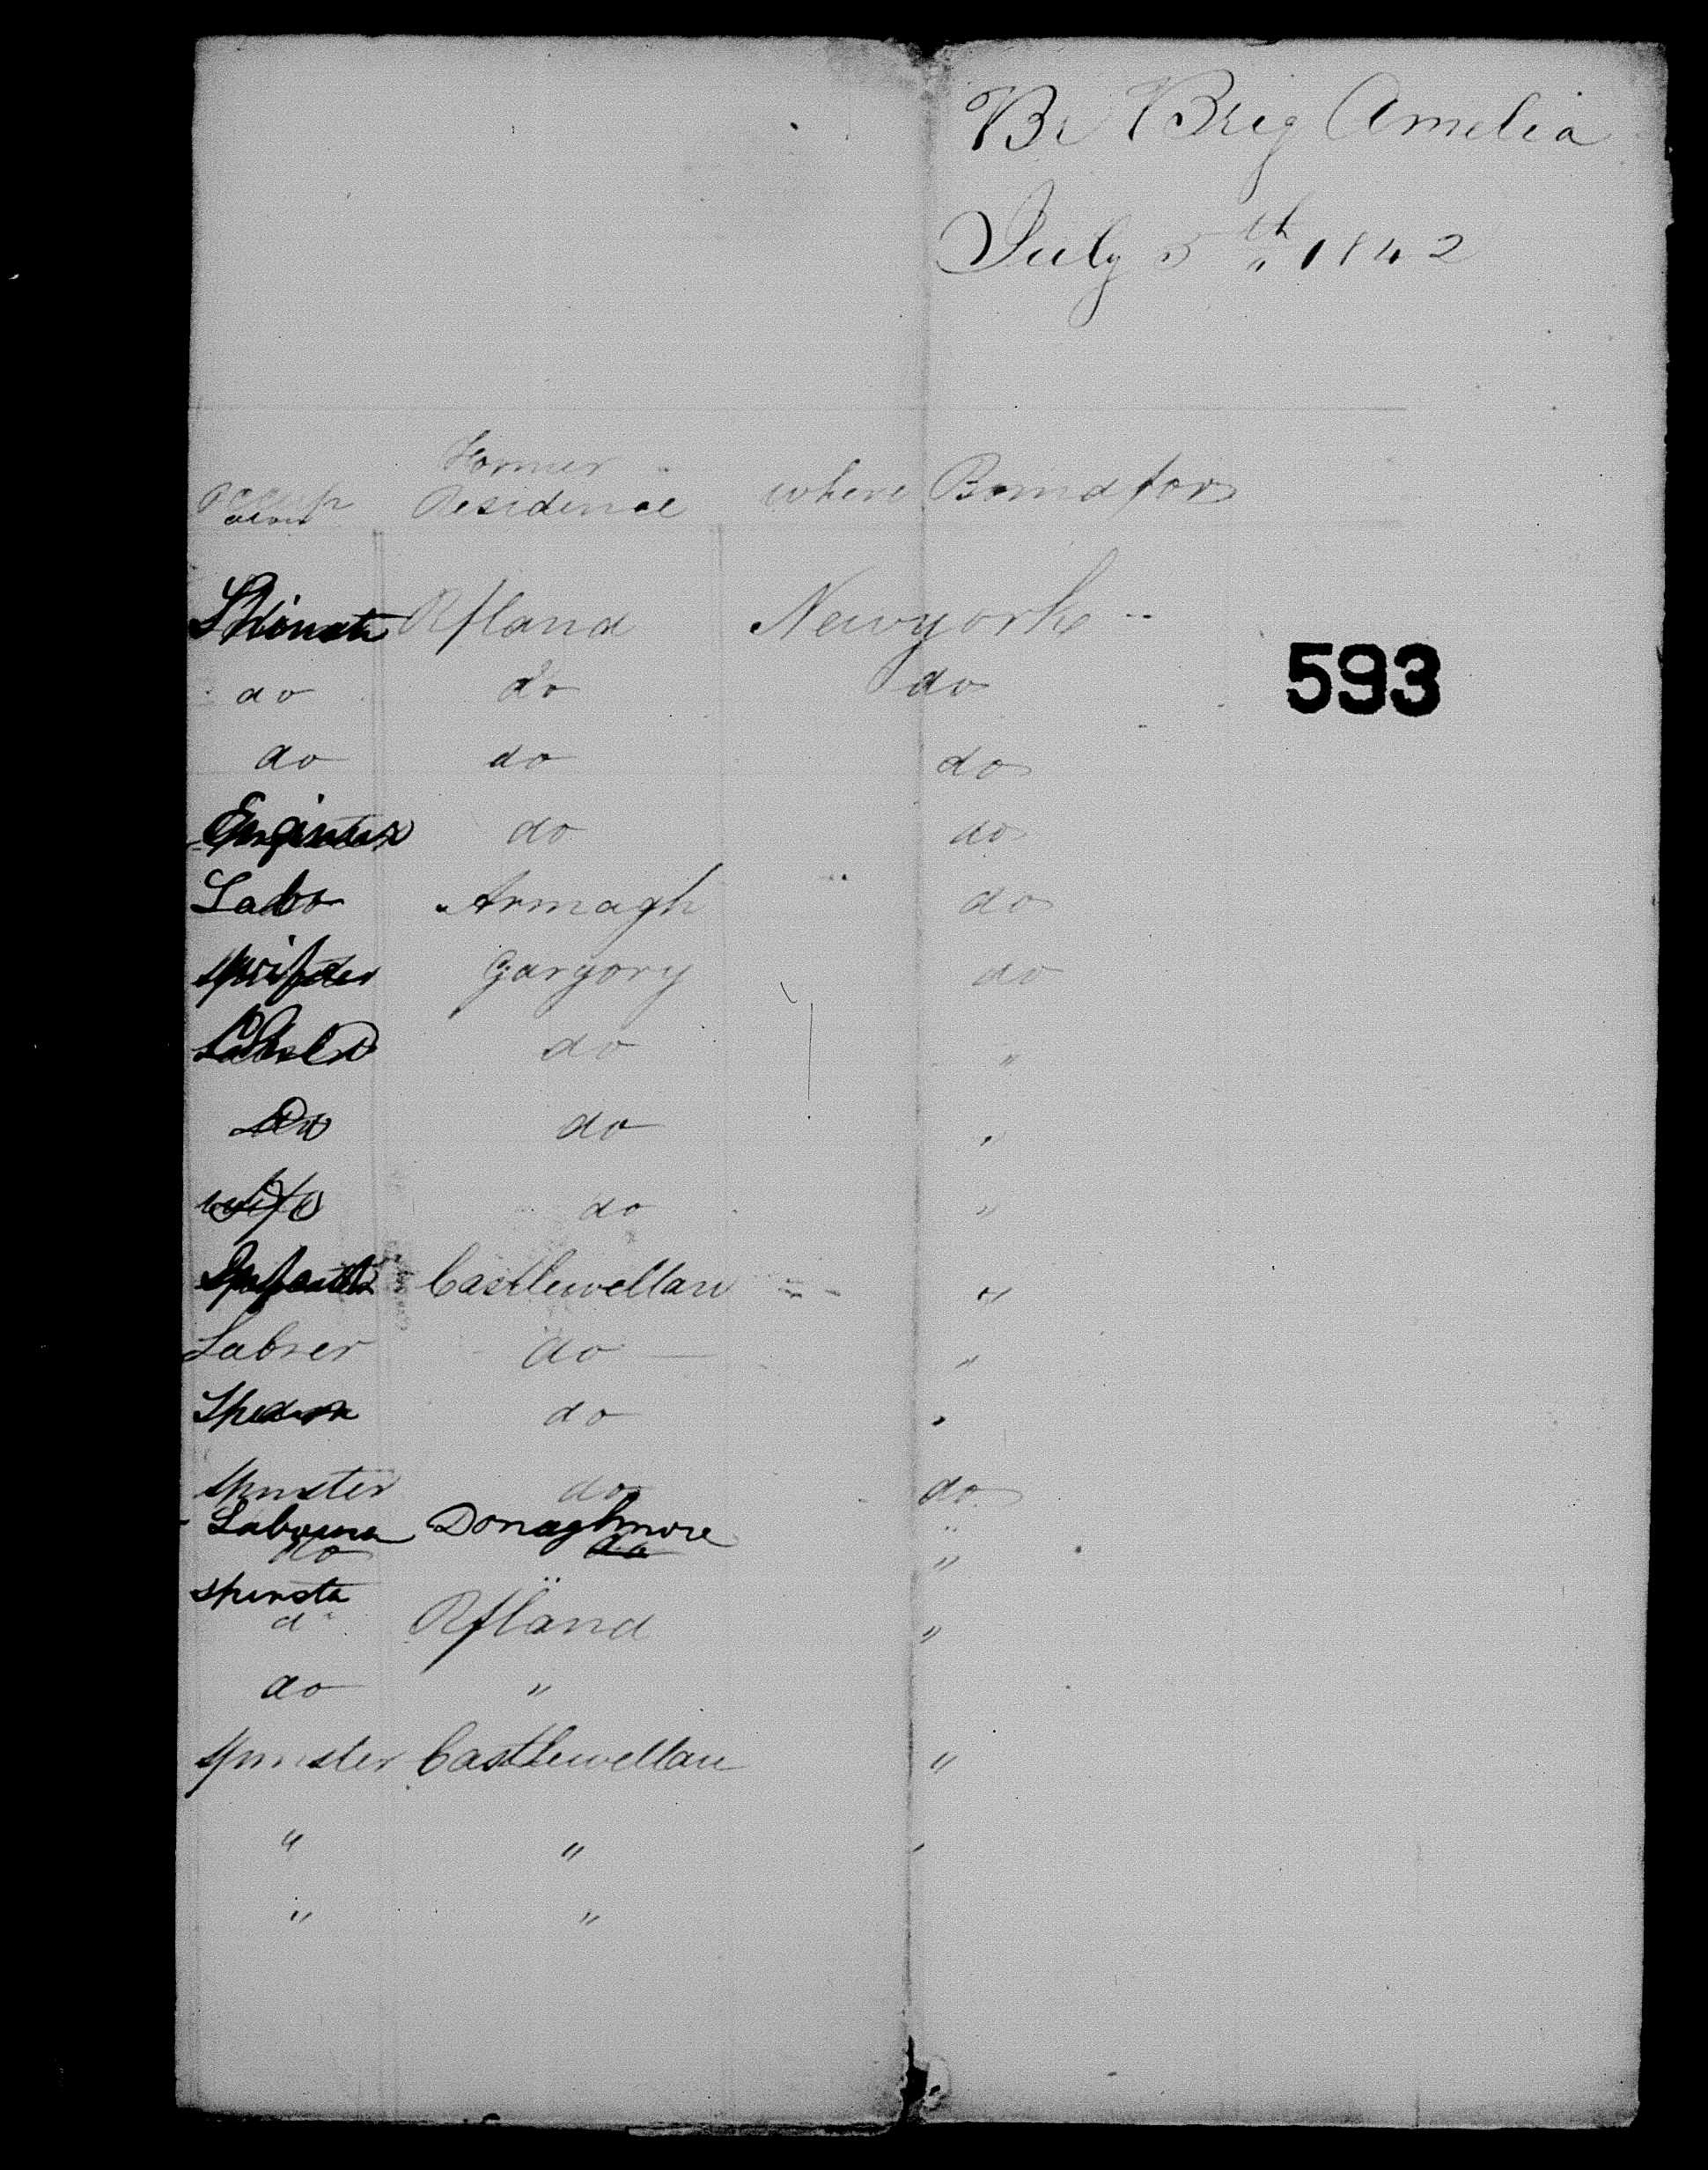 Br Brig Amelia
July 5th 1842
Former
Occup Residence where Bound for
ation
Rfland Newyork
do do do
do do do
do do
593
Labo Armagh do
Gargory do
do "
Do do "
wife do "
Castlewellan "
Labrer do "
do "
Spinster do do
Labourer Donaghmore "
do do "
spinster "
do Rfland "
do "
Spinster Castlewellan "
" " "
" "